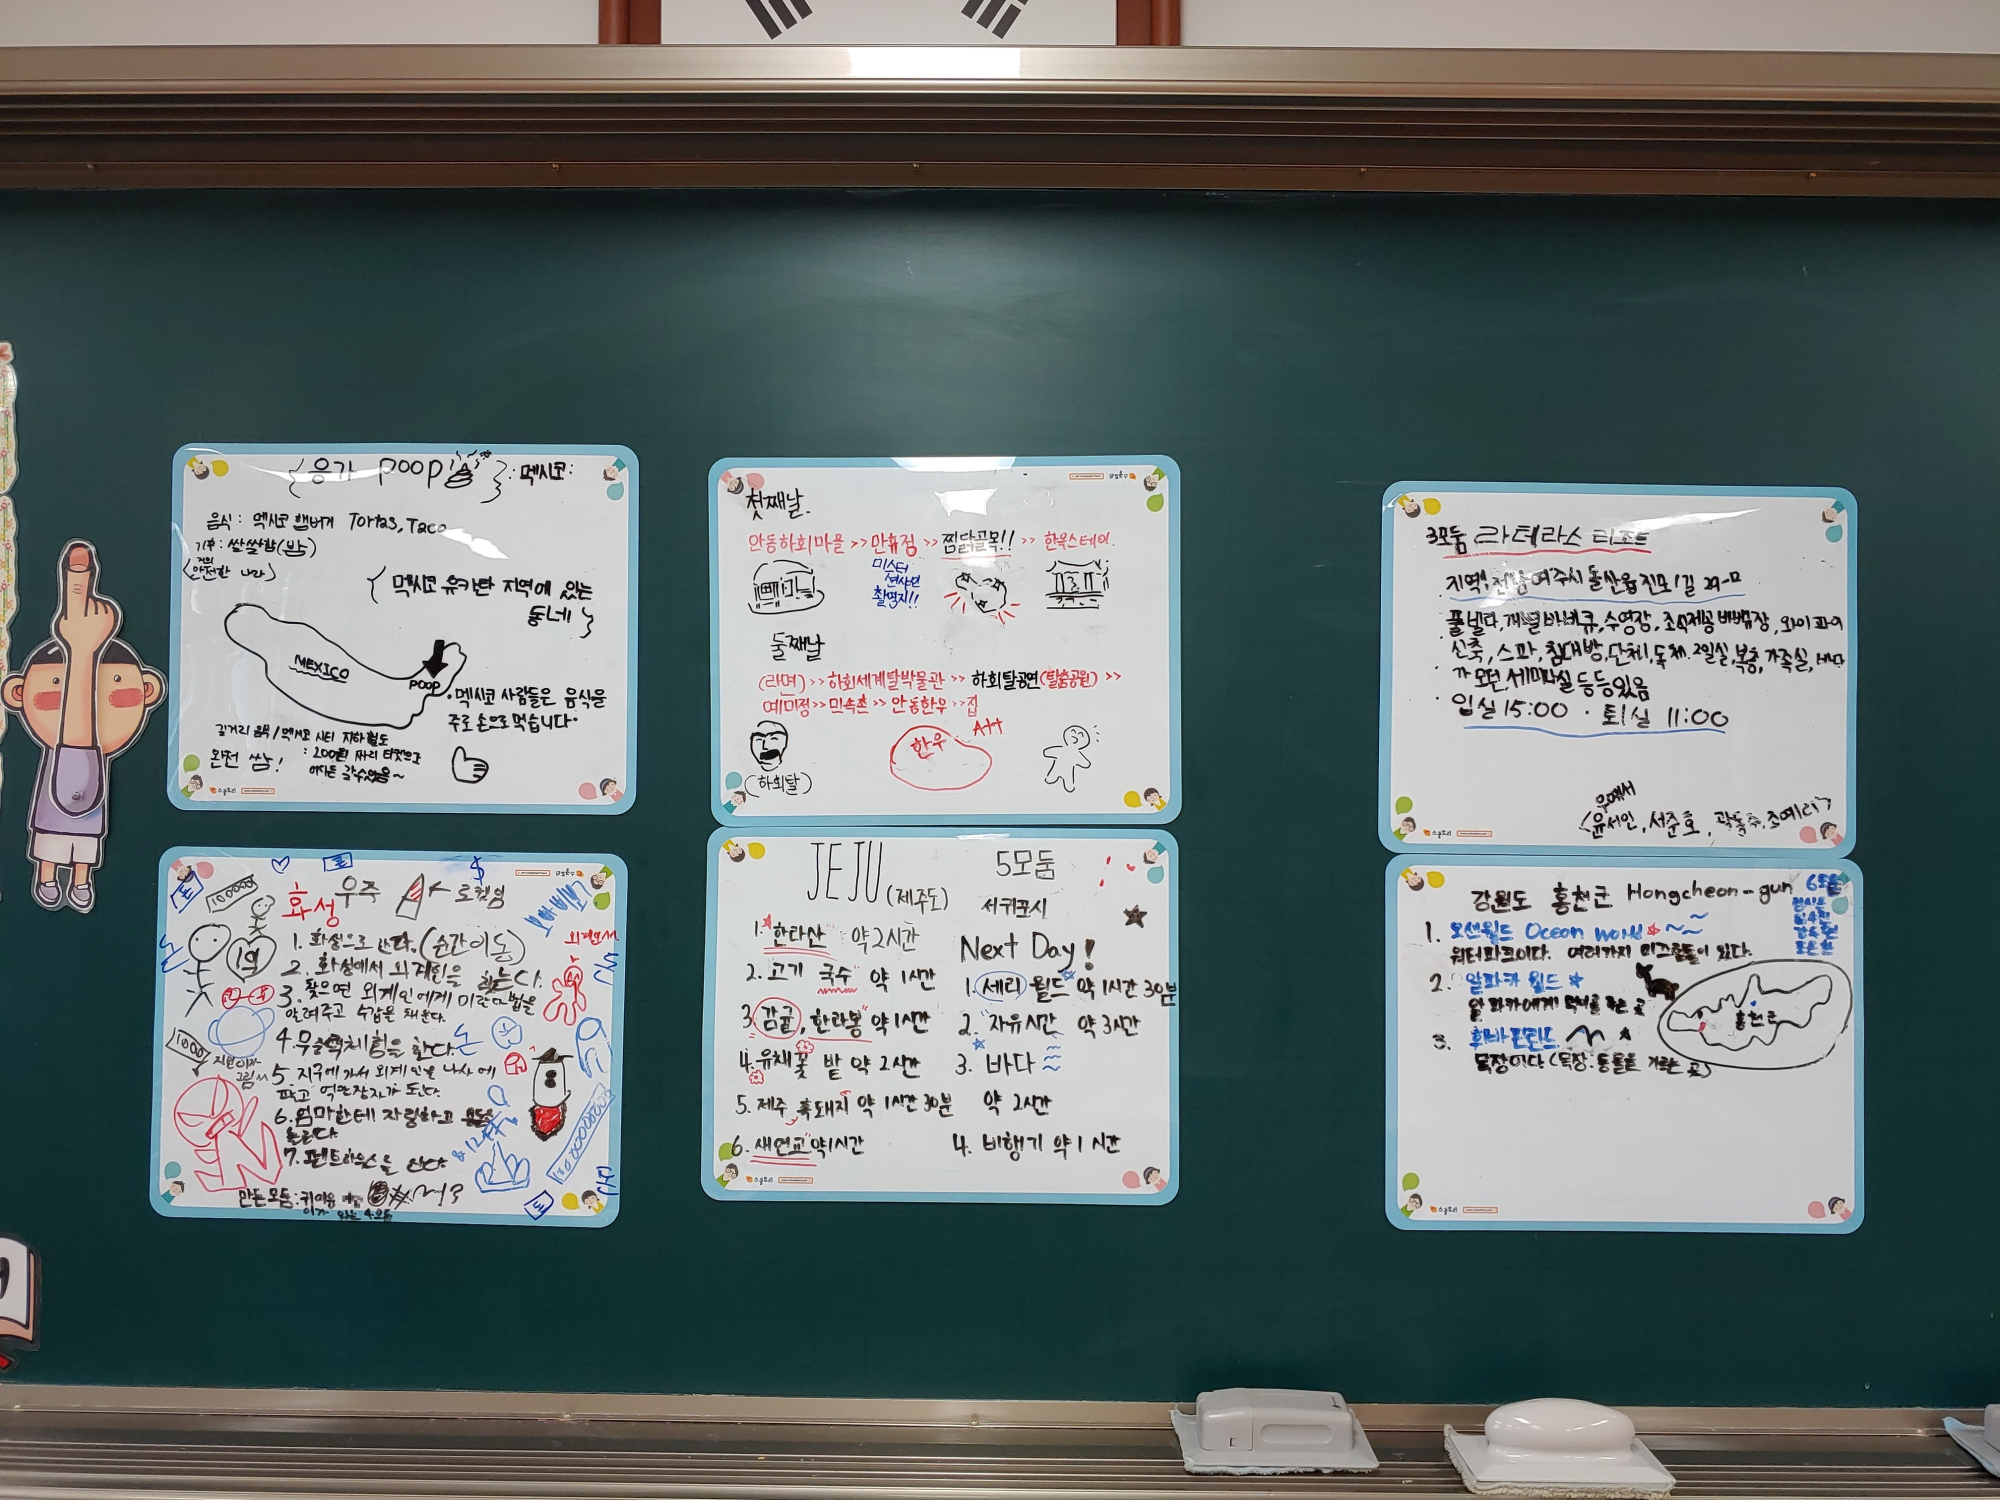 {응가 poop} :멕시코:
음식: 멕시코 햄버거 Tortas, Taco
기후: 쌀쌀함(밤)
안전한 나라
{멕시코 유카탄 지역에 있는
동네}
MEXICO
POOP
·멕시코 사람들은 음식을
주로 손으로 먹습니다·
길거리 음식/멕시코 시티 지하철도
완전 쌈!
: 200원 짜리 티켓으로
첫째날.
안동하회마을 >> 만휴정 >> 찜닭골목!! >> 한옥스테이.
미스터
션샤인
촬영지!!
둘째날
(라면) >> 하회세계탈박물관 >> 하회탈공연(탈춤공원) >>
예미정 >> 민속촌 >> 안동한우 >> 집
한우 A++
(하회탈)
3모둠 라테라스 리조트
지역: 전남 여수시 돌산읍 진모1길
풀빌라, 개별바베큐, 수영장, 조식제공, 와이파이
신축, 스파, 침대방, 단체, 독채, 복층, 가족실,
등등있음
입실 15:00 · 퇴실 11:00
윤서인, 서준호,
화성 우주
10000
1억
1. 화성으로 간다.(순간이동)
2. 화성에서 외계인을 찾는다.
3. 찾으면 외계인에게 방법을
알려주고 수갑을 채운다.
4. 무중력체험을 한다.
돈
5. 지구에 가서 외계인을 나사에
팔고 억만장자가 된다.
6. 엄마한테 자랑하고
7. 펜트하우스를 산다.
만든 모둠:
JEJU (제주도) 5모둠
서귀포시
1. 한라산 약 2시간
2. 고기 국수 약 1시간
3. 감귤, 한라봉 약 1시간
4. 유채꽃 밭 약 2시간
5. 제주 흑돼지 약 1시간 30분
6. 새연교 약 1시간
Next Day!
1. 세리 월드 약 1시간 30분
2. 자유시간 약 3시간
3. 바다
약 2시간
4. 비행기 약 1시간
강원도 홍천군 Hongcheon-gun 6모둠
1. 오션월드 Ocean World
워터파크이다. 여러가지 미끄럼틀이 있다.
2. 알파카 월드
알파카에게 먹이를 주는 곳
3.
목장이다 (목장: 동물을 기르는 곳)
홍천군
스쿨토리